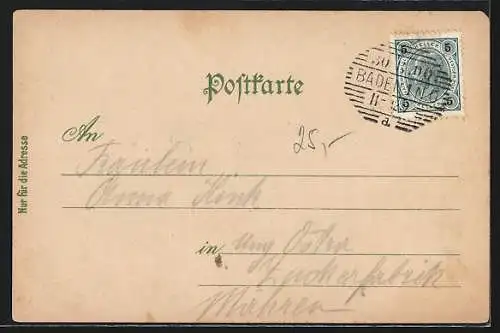 Postkarte
5 5
BADEN
a
An
25,-
Fräulein
Anna
in Ung Ostra
Zuckerfabrik
Mähren
Nur für die Adresse